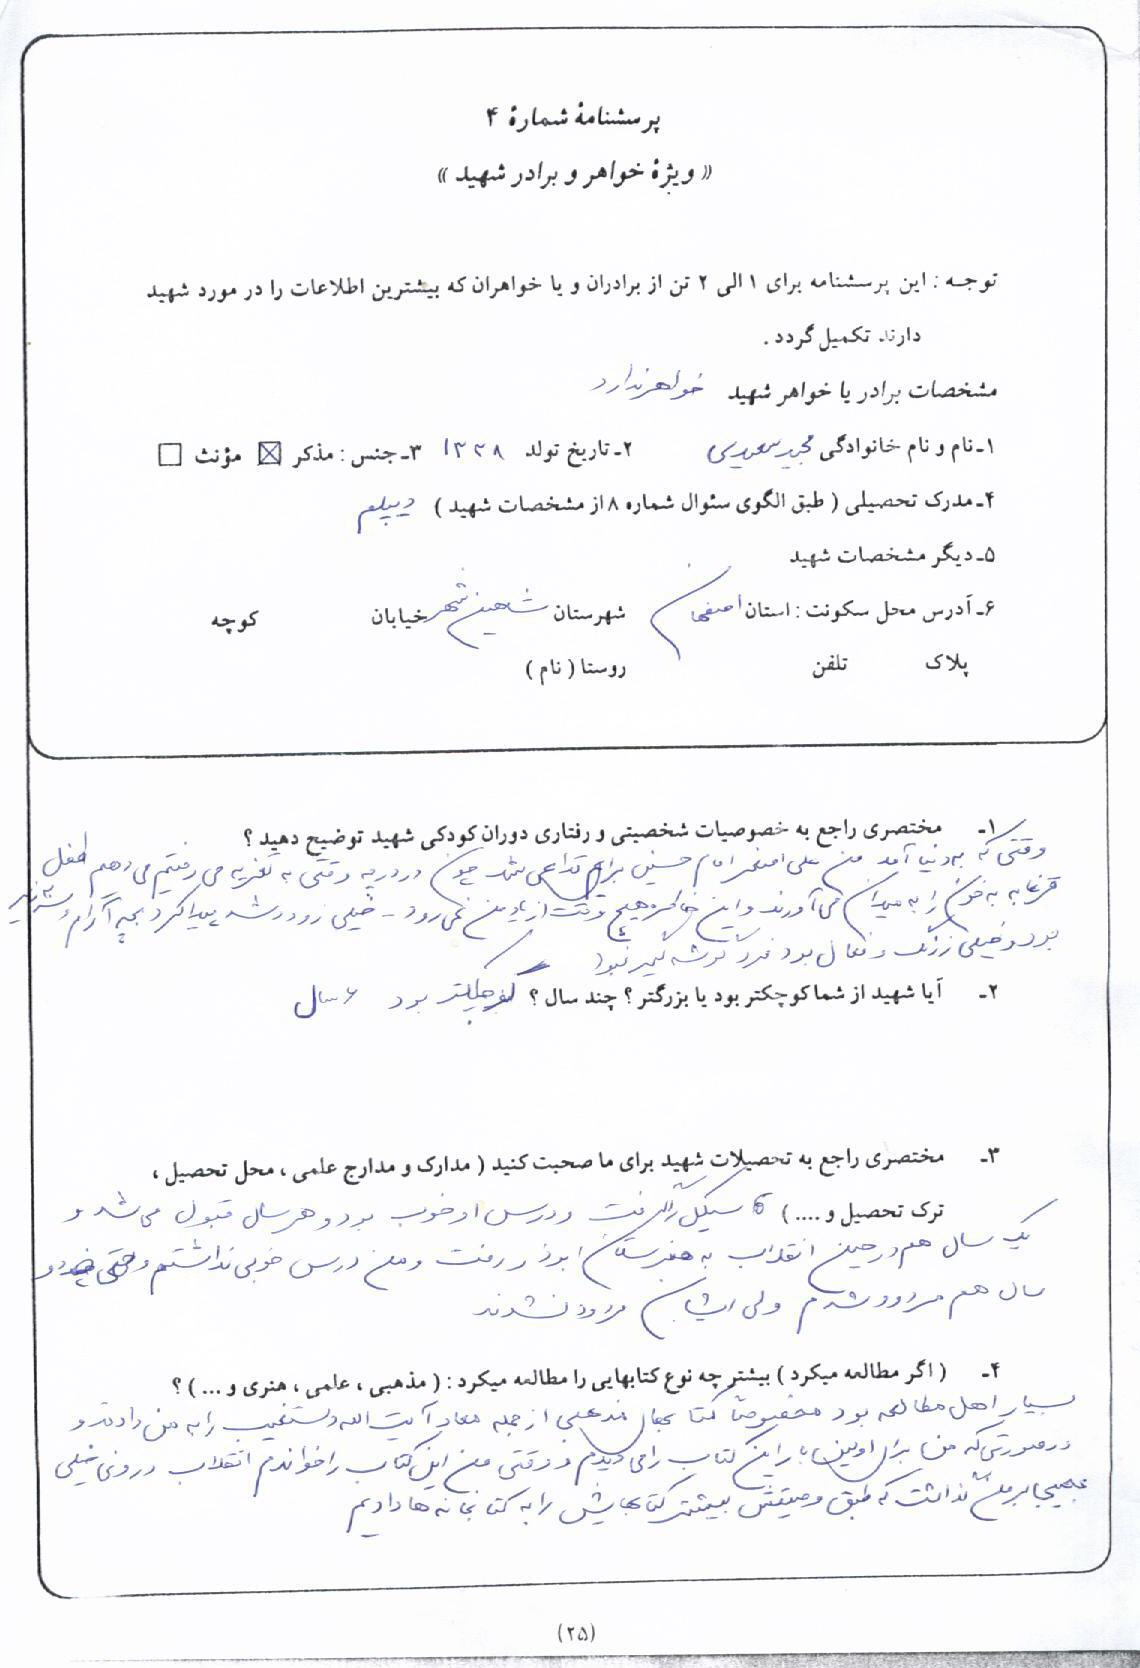 پرسشنامهٔ شمارهٔ ۴
« ویژهٔ خواهر و برادر شهید »
توجه : این پرسشنامه برای ۱ الی ۲ تن از برادران و یا خواهران که بیشترین اطلاعات را در مورد شهید
دارند تکمیل گردد .
مشخصات برادر یا خواهر شهید خواهر ندارد
۱ـ نام و نام خانوادگی مجید سعیدی ۲ـ تاریخ تولد ۱۳۳۸ ۳ـ جنس : مذکر ☒ مؤنث ☐
۴ـ مدرک تحصیلی ( طبق الگوی سئوال شماره ۸ از مشخصات شهید ) دیپلم
۵ـ دیگر مشخصات شهید
۶ـ آدرس محل سکونت : استان اصفهان شهرستان شاهین شهر خیابان کوچه
پلاک تلفن روستا ( نام )
۱ـ مختصری راجع به خصوصیات شخصیتی و رفتاری دوران کودکی شهید توضیح دهید ؟
وقتی که به دنیا آمد من علی اصغر امام حسین برایم تداعی شد چون وقتی به تعزیه می رفتیم طفل
به خون را به میدان می آورند و این خاطره هیچ وقت از یاد من نمی رود - خیلی زود رشد پیدا کرد بچه آرام و سر به زیر
بود و خیلی زرنگ و فعال بود فرد گوشه گیر نبود
۲ـ آیا شهید از شما کوچکتر بود یا بزرگتر ؟ چند سال ؟ کوچکتر بود ۶ سال
۳ـ مختصری راجع به تحصیلات شهید برای ما صحبت کنید ( مدارک و مدارج علمی ، محل تحصیل ،
ترک تحصیل و .... ) تا سیکل را گرفت و درس او خوب بود و هر سال قبول می شد و
یک سال هم در حین انقلاب به هنرستان ابوذر رفت و من درس خوبی نداشتم و حتی دو
سال هم مردود شدم ولی ایشان مردود نشدند
۴ـ ( اگر مطالعه میکرد ) بیشتر چه نوع کتابهایی را مطالعه میکرد : ( مذهبی ، علمی ، هنری و ... ) ؟
بسیار اهل مطالعه بود مخصوصا کتابهای مذهبی از جمله معاد آیت الله دستغیب را به من دادند و
در صورتی که من برای اولین بار این کتاب را می دیدم و وقتی من این کتاب را خواندم انقلاب درونی خیلی
عجیبی بر من گذاشت که طبق وصیتش بیشتر کتابهایش را به کتابخانه ها دادیم
(۲۵)